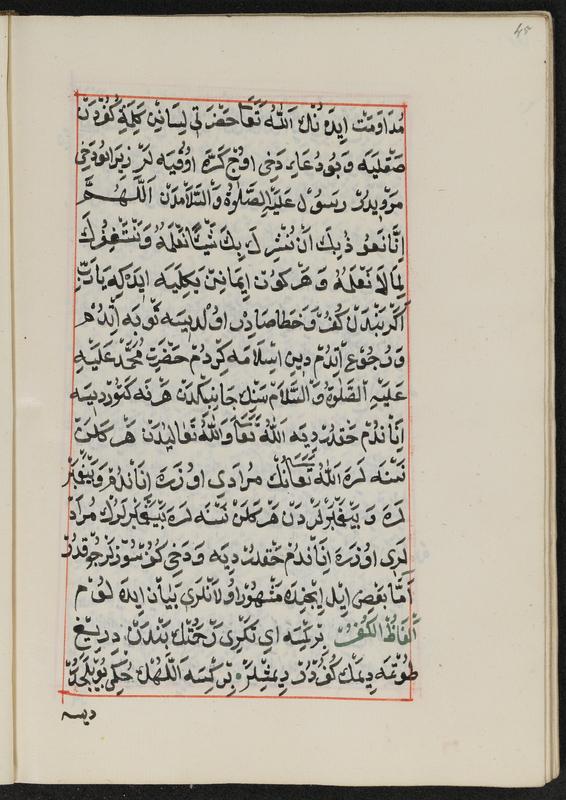 مُدَاوَمَتْ اِيدَه نُكْ اَللّٰهُ تَعَالٰى حَضْرَتِى لِسَانِنْ كَلِمَۀِ كُفُرْدَنْ
صَقْلَيَه وَبُو دُعَايِ دَخِى اوُجْ كَرَّه اوُقُيَه لَرْ زِيرَا بُو دَخِى
مَرْوِيدُرْ رَسُولْ عَلَيْهِ الصَّلٰوةُ وَالسَّلَامْدَنْ اَللّٰهُمَّ
اِنَّا نَعُوذُ بِكَ اَنْ نُشْرِكَ بِكَ شَيْئًا نَعْلَمُهُ وَنَسْتَغْفِرُكَ
لِمَا لَا نَعْلَمُهُ وَهَرْ كُونْ اِيمَانِنْ يَكِلَيَه اِيدَه كِه يَا رَبِّ
اَكَرْ بَنْدَنْ كُفُرْ وَخَطَا صَادِرْ اوُلْدِيسَه تَوْبَه اِتْدُمْ
وَرُجُوعْ اِتْدُمْ دِينِ اِسْلَامَه كِرْدُمْ حَضْرَتِ مُحَمَّدْ عَلَيْهِ
عَلَيْهِ الصَّلٰوةُ وَالسَّلَامْ سَنِكْ جَانِبِكْدَنْ هَرْ نَه كَتُورْدِيسَه
اِنَانْدُمْ حَقْدُرْ دِيَه اَللّٰهُ تَعَالٰى وَاَللّٰهُ تَعَالٰيدَنْ هَرْ كَلَنْ
نَسْنَه لَرَه اَللّٰهُ تَعَالٰىنُكْ مُرَادِى اوُزَرَه اِنَانْدُمْ وَپَيْغَمْبَرْ
لَرَه وَپَيْغَمْبَرْلَرْدَنْ هَرْ كَلَنْ نَسْنَه لَرَه پَيْغَمْبَرْلَرُكْ مُرَادْ
لَرِى اوُزَرَه اِنَانْدُمْ حَقْدُرْ دِيَه وَدَخِى كُفُرْ سُوزْلَرْ چُوقْدُرْ
اَمَّا بَعْضِ اِيلْ اِيچِنْدَه مَشْهُورْ اوُلَانْلَرِى بَيَانْ اِيدَه لُومْ
اَلْفَاظُ الْكُفُرْ بِرْ كِسَه اَىْ تَكْرِى رَحْمَتُكْ بَنْدَنْ دِرِيغْ
طُوتْمَه دِيمَكْ كُفُرْدُرْ دِيمِشْلَرْ بِرْ كِسَه اَللّٰهُكْ حُكْمِى بُويْلَيْدُرْ
دیسه